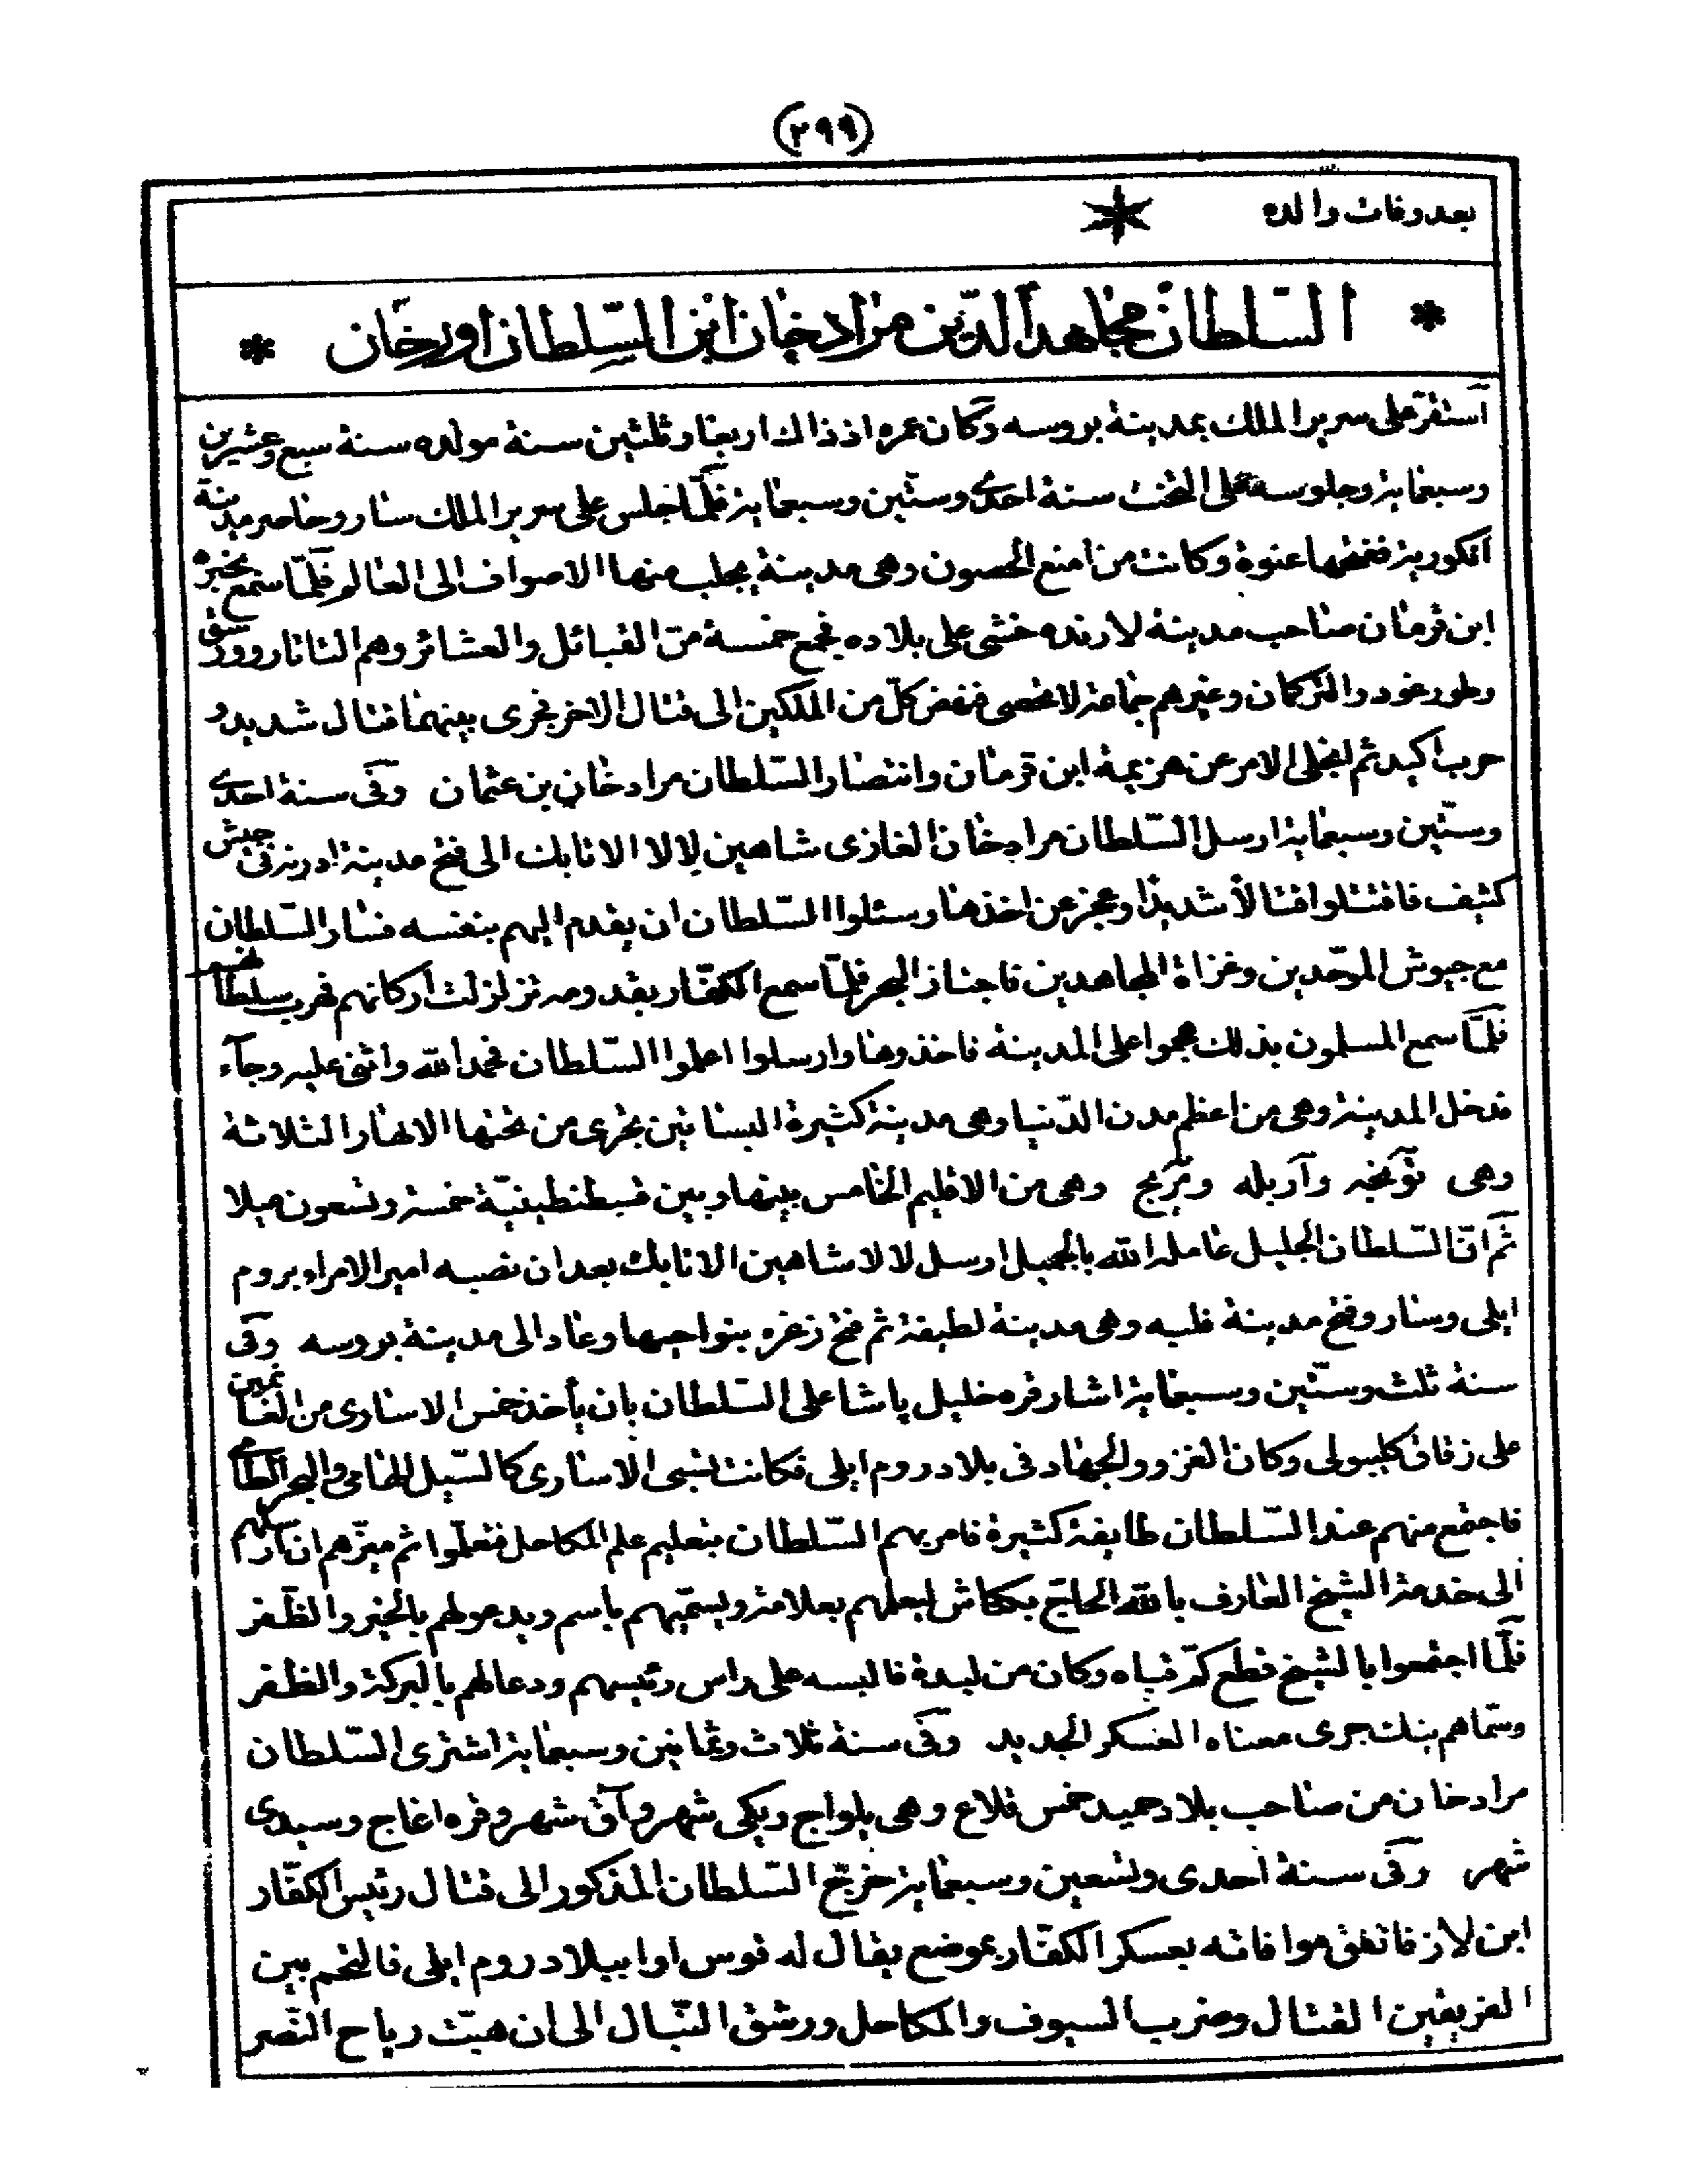 (٢٩٩)
بعد وفات والده
* السلطان مجاهد الدين مراد خان ابن السلطان اورخان *
استقر على سرير الملك بمدينة بروسه وكان عمره اذ ذاك اربعا وثلثين سنة مولده سنة سبع وعشرين
وسبعماية وجلوسه على التخت سنة احدى وستين وسبعماية فلما جلس على سرير الملك سار وحاصر مدينة
انكورية ففتحها عنوة وكانت من امنع الحصون وهى مدينة يجلب منها الاصواف الى العالم فلما سمع بخبره
ابن قرمان صاحب مدينة لارنده خشى على بلاده فجمع خمسة من القبائل والعشائر وهم التاتار وورسق
وطورغود والتركمان وغيرهم جماعة لا تحصى فنهض كل من الملكين الى قتال الاخر فجرى بينهما قتال شديد و
حرب اكيد ثم انجلى الامر عن هزيمة ابن قرمان وانتصار السلطان مراد خان بن عثمان وفى سنة احدى
وستين وسبعماية ارسل السلطان مراد خان الغازى شاهين لالا الاتابك الى فتح مدينة ادرنه فى جيش
كثيف فاقتتلوا قتالا شديدا وعجز عن اخذها وسئلوا السلطان ان يقدم اليهم بنفسه فسار السلطان
مع جيوش الموحدين وغزاة المجاهدين فاجتاز البحر فلما سمع الكفار بقدومه تزلزلت اركانهم فهرب سلطانهم
فلما سمع المسلمون بذلك هجموا على المدينة فاخذوها وارسلوا اعلموا السلطان فحمد الله واثنى عليه وجآء
فدخل المدينة وهى من اعظم مدن الدنيا وهى مدينة كثيرة البساتين تجرى من تحتها الانهار الثلاثة
وهى تونجه وآربله ومريج وهى من الاقليم الخامس بينها وبين قسطنطينية خمسة وتسعون ميلا
ثم ان السلطان الجليل عامله الله بالجميل ارسل لالا شاهين الاتابك بعد ان نصبه امير الامراء بروم
ايلى وسار وفتح مدينة فلبه وهى مدينة لطيفة ثم فتح زغره بنواحيها وعاد الى مدينة بروسه وفى
سنة ثلث وستين وسبعماية اشار قره خليل پاشا على السلطان بان يأخذ خمس الاسارى من الغانمين
على زقاق كليبولى وكان الغزو والجهاد فى بلاد روم ايلى فكانت تسبى الاسارى كالسيل الهامى والبحر الطامى
فاجتمع منهم عند السلطان طايفة كثيرة فامر بهم السلطان بتعليم علم المكاحل فتعلموا ثم ميزهم ان ارسلهم
الى خدمة الشيخ العارف بالله الحاج بكتاش ليعلمهم بعلامة ويسميهم باسم ويدعو لهم بالخير والظفر
فلما اجتمعوا بالشيخ قطع كم قباه وكان من لبدة فالبسه على راس رئيسهم ودعا لهم بالبركة والظفر
وسماهم بنك جرى معناه العسكر الجديد وفى سنة ثلاث وثمانين وسبعماية اشترى السلطان
مراد خان من صاحب بلاد حميد خمس قلاع وهى يلواج ويكى شهر وآق شهر وقره اغاج وسيدى
شهر وفى سنة احدى وتسعين وسبعماية خرج السلطان المذكور الى قتال رئيس الكفار
ابن لاز فاتفق موافاته بعسكر الكفار بموضع يقال له قوس اوا ببلاد روم ايلى فالتحم بين
الفريقين القتال وضرب السيوف والمكاحل ورشق النبال الى ان هبت رياح النصر